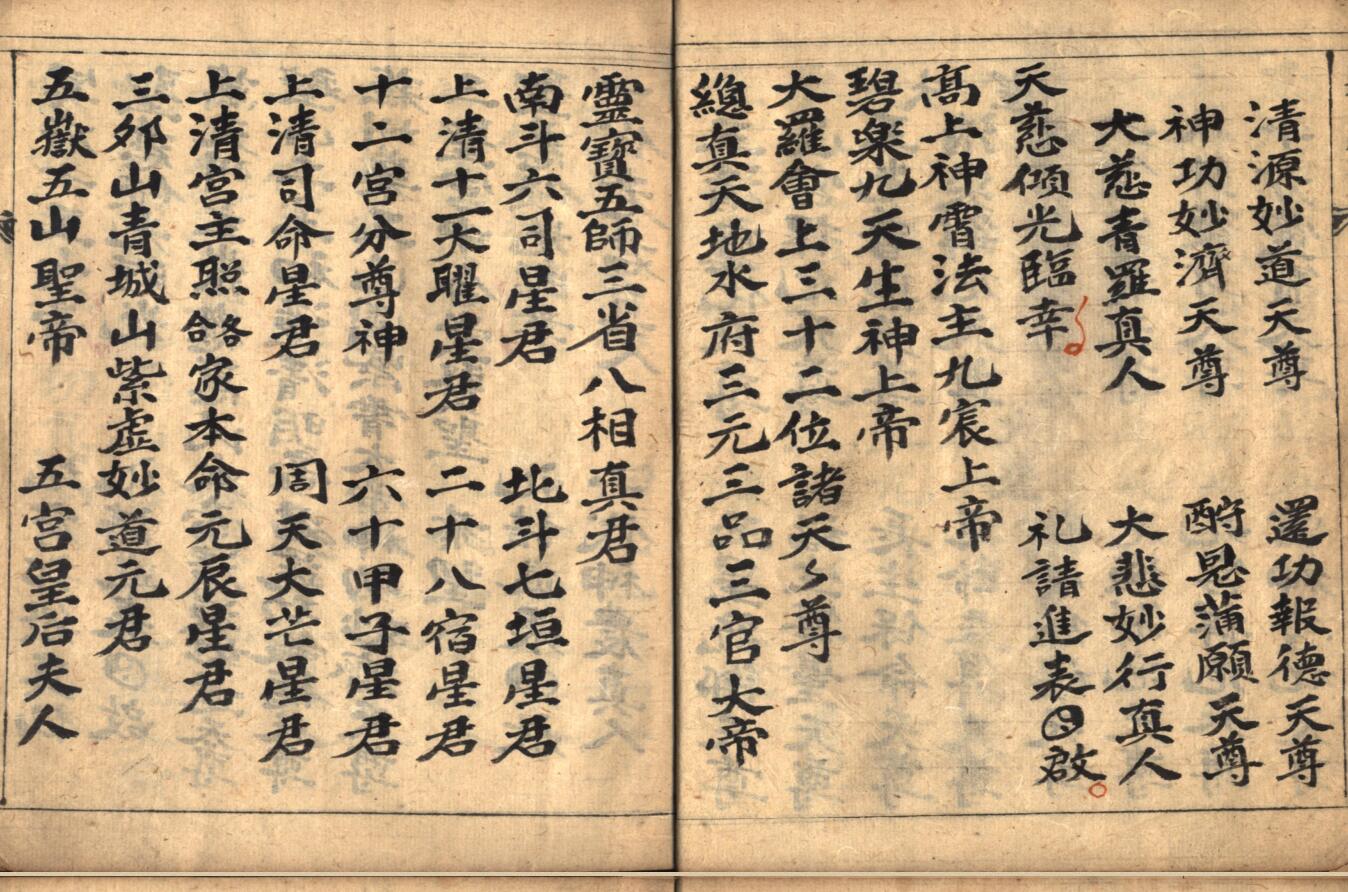 清源妙道天尊 還功報德天尊
神功妙濟天尊 酧恩蒲願天尊
大慈青羅真人 大悲妙行真人
天慈傾光臨幸 礼請進表 啟
髙上神霄法主九宸上帝
碧樂九天生神上帝
大羅會上三十二位諸天〻尊
總真天地水府三元三品三官大帝
靈寶五師三省八相真君
南斗六司星君 北斗七垣星君
上清十一大曜星君 二十八宿星君
十二宮分尊神 六十甲子星君
上清司命星君 周天大芒星君
上清宮主照合各家本命元辰星君
三邜山青城山紫虛妙道元君
五嶽五山聖帝 五宮皇后夫人